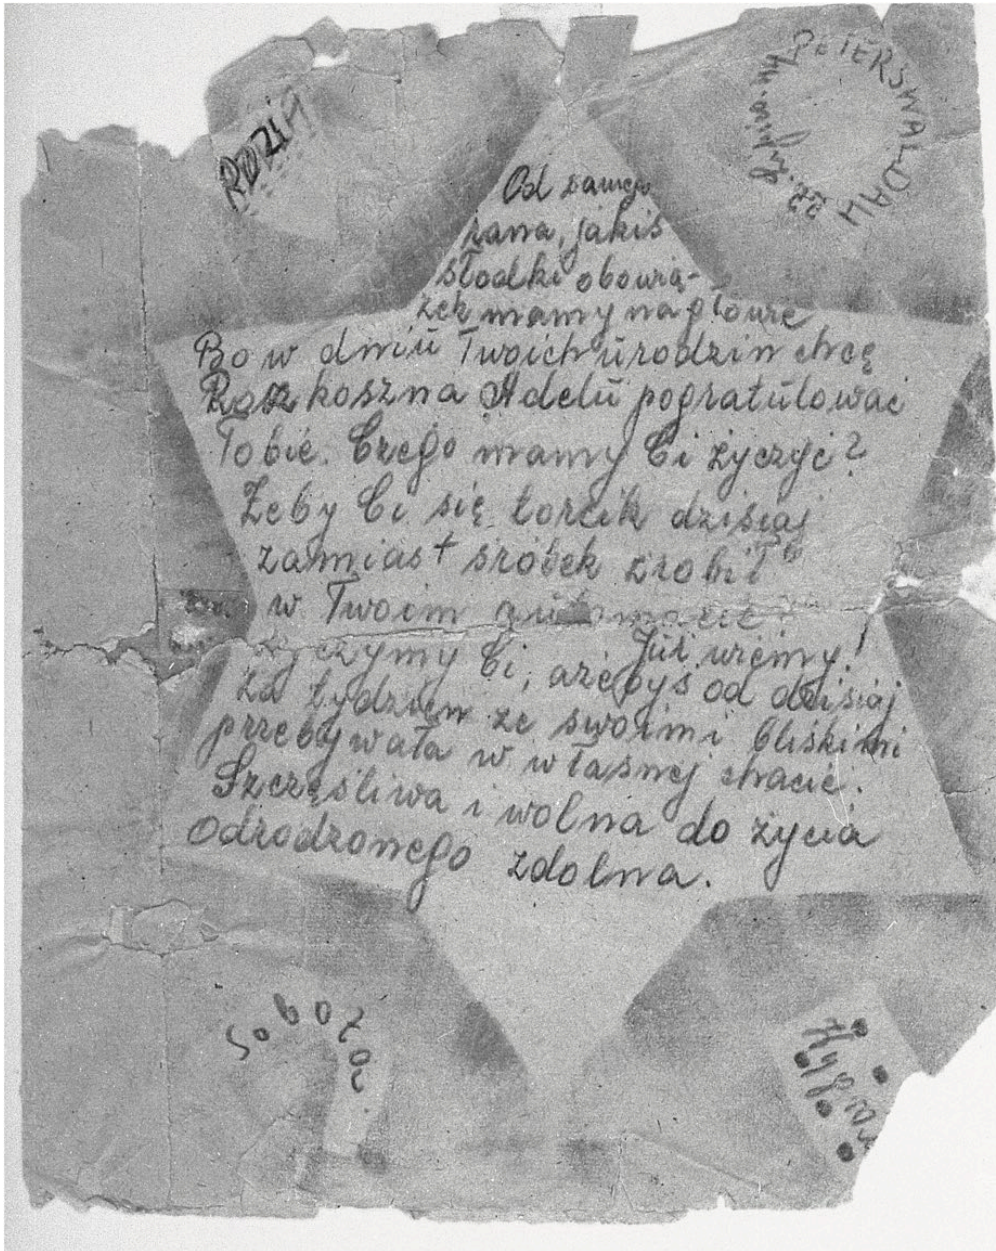 RÓZIA
PETERSWALDAU
22. Lipiec 44
Od samego
rana, jakiś
słodki obowią-
zek mamy na głowie
Bo w dniu Twoich urodzin chcę
Rozkoszna Adelu pogratulować
Tobie. Czego mamy Ci życzyć?
Żeby Ci się torcik dzisiaj
zamiast śróbek zrobił
w Twoim automacie.
Już wiemy!
Życzymy Ci, ażebyś od dzisiaj
za tydzień ze swoimi bliskimi
przebywała w własnej chacie.
Szczęśliwa i wolna do życia
Odrodzonego zdolna.
Sobota